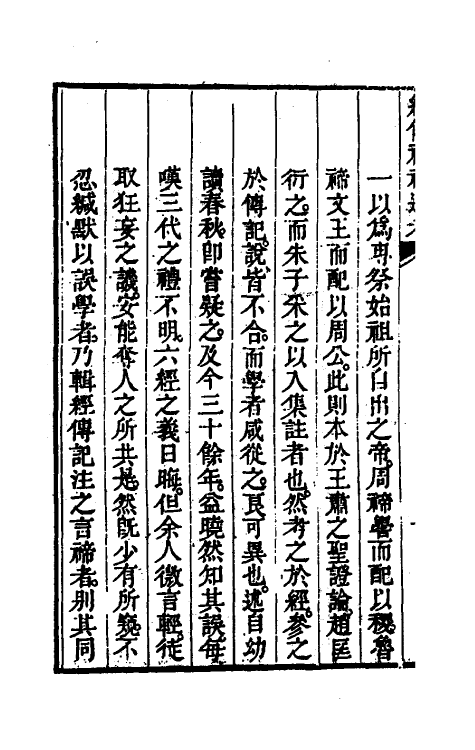 一以爲專祭始祖所自出之帝。周禘嚳而配以稷。魯
禘文王而配以周公。此則本於王肅之聖證論。趙匡
衍之。而朱子采之以入集註者也。然考之於經。參之
於傳記。說皆不合。而學者咸從之。良可異也。述自幼
讀春秋。卽嘗疑之。及今三十餘年。益曉然知其誤。每
嘆三代之禮不明。六經之義日晦。但余人微言輕。徒
取狂妄之譏。安能奪人之所共是。然既少有所窺。不
忍緘默以誤學者。乃輯經傳記注之言禘者。別其同